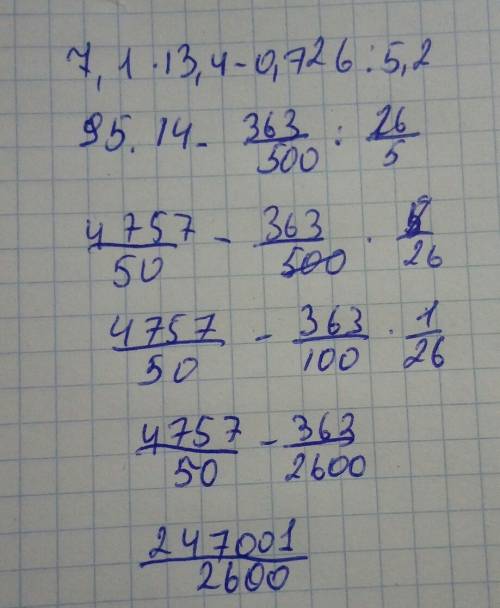 7,1·13,4-0,726:5,2
95.14- 363/500 : 26/5
4757/50 - 363/500 · 5/26
4757/50 - 363/100 · 1/26
4757/50 - 363/2600
247001/2600